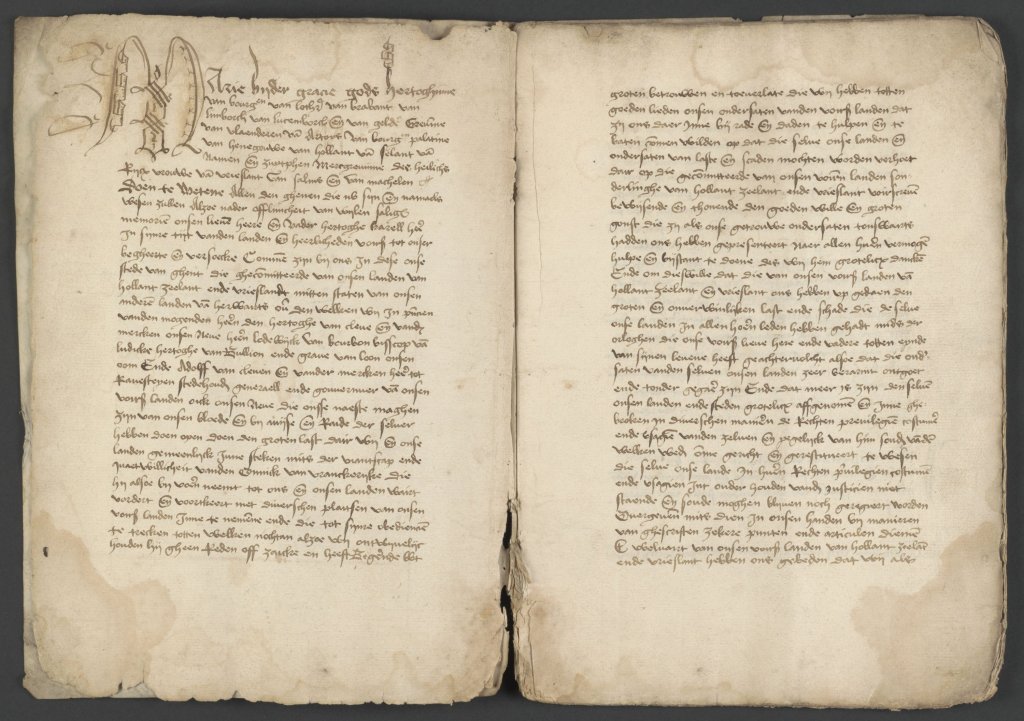 Marie bijder gracie gods Hertoghinne
van bourgen van lothr van brabant van
limborch van lucemborch en van gelre Greuine
van vlaenderen van Artois van bourg palatine
van henegouwe van hollant van selant van
Namen en zuytphen Mercgreuinne des heilichs
Rijx vrouwe van vrieslant van salins en van machelen
Doen te wetene Allen den ghenen die nv sijn en namaels
wesen zullen Alzoe nader offliuicheit van wijlen saligr
memorien onsen lieuen heere en vader hertoghe karell her
In sijnre tijt vanden landen en heerlicheden vorss tot onser
begheerte en versoecke Commen zijn bij ons In dese onse
stede van ghent die ghecommitteerde van onsen landen van
hollant zeelant ende vrieslandt mitten staten van onsen
anderen landen van herwaerts ouer den welken wij In
vanden mogenden heren den hertoghe van cleue en vander
mercken onsen Neue heren lodewijck van bourbon bisscop van
ludicke hertoghe van Bullion ende graue van loon onsen
oom Ende Adolff van cleuen en vander mercken heer tot
Rauesteyn stedehoudr generaell ende gouuernuer van onsen
vorss landen oick onsen Neue die onsse naeste maghen
zijn van onsen bloede en bij aduise en Raide der seluer
hebben doen open doen den groten last dair wij en onse
landen gemeenlijck Inne steken mits der viantscap ende
quaetwillicheit vanden Coninck van vranckerijke die
hij alsoe bij voert neemt tot ons en onsen landen wart
vordert en voortkeert met diuerschen plaetsen van onsen
vorss landen Inne te nemene ende die tot sijnre obediencien
te trecken totten welken nochtan alzoe wij ontwijuelic
houden hij gheen Reden off zaicke en heeft Begerende bet
groten betrouwen en toeuerlate die wij hebben totten
goeden lieden onsen ondersaten vanden vorss landen dat
zij ons daer Inne bij rade en daden te hulpen en te
baten commen wilden op dat die selue onse landen en
ondersaten van laste en scaden mochten worden verhoet
dair op die gecommitteerde van onsen vorss landen son
derlinghe van hollant zeelant ende vrieslant voirscreuen
bewijsende en thonende den goeden wille en groten
gonst die zij als onse getrouwe ondersaten tonswaerts
hadden ons hebben gepresenteert Naer allen huren vermogen
hulpe en bijstant te doene des wij hem grotelicx dancken
Ende om dieswille dat die van onsen vorss landen van
hollant zeelant en vrieslant ons hebben op gedaen den
groten en onuerwinliken last ende schade die de selue
onse landen In allen voirleden hebben gehadt mids der
orloghen die onse vorss lieue here ende vadere totten eynde
van sijnen leuene heeft geachteruolcht alsoe dat die onder
saten vanden seluen onsen landen zeer verarmt ontgoet
ende tonder gegaen zijn Ende dat meer is zijn den seluen
onsen landen ende steden grotelicx affgenomen en Inne ghe
broken In diuerschen manieren de Rechten preuilegien costumen
ende vsagien vanden zeluen en yegelijck van him sonder van den
welken weder omme gericht en gerestitueert te wesen
die selue onse lande In huren Rechten preuilegien costumen
ende vsagien Int onder houden vander Justicien niet
staende en soude moghen blijuen noch geregeert worden
Ouergeuen mits dien In onsen handen bij manieren
van ghescriften zekere punten ende articulen dienende
E welvaert van onsen vorss landen van hollant zeelant
ende vrieslant hebben ons gebeden dat wij als